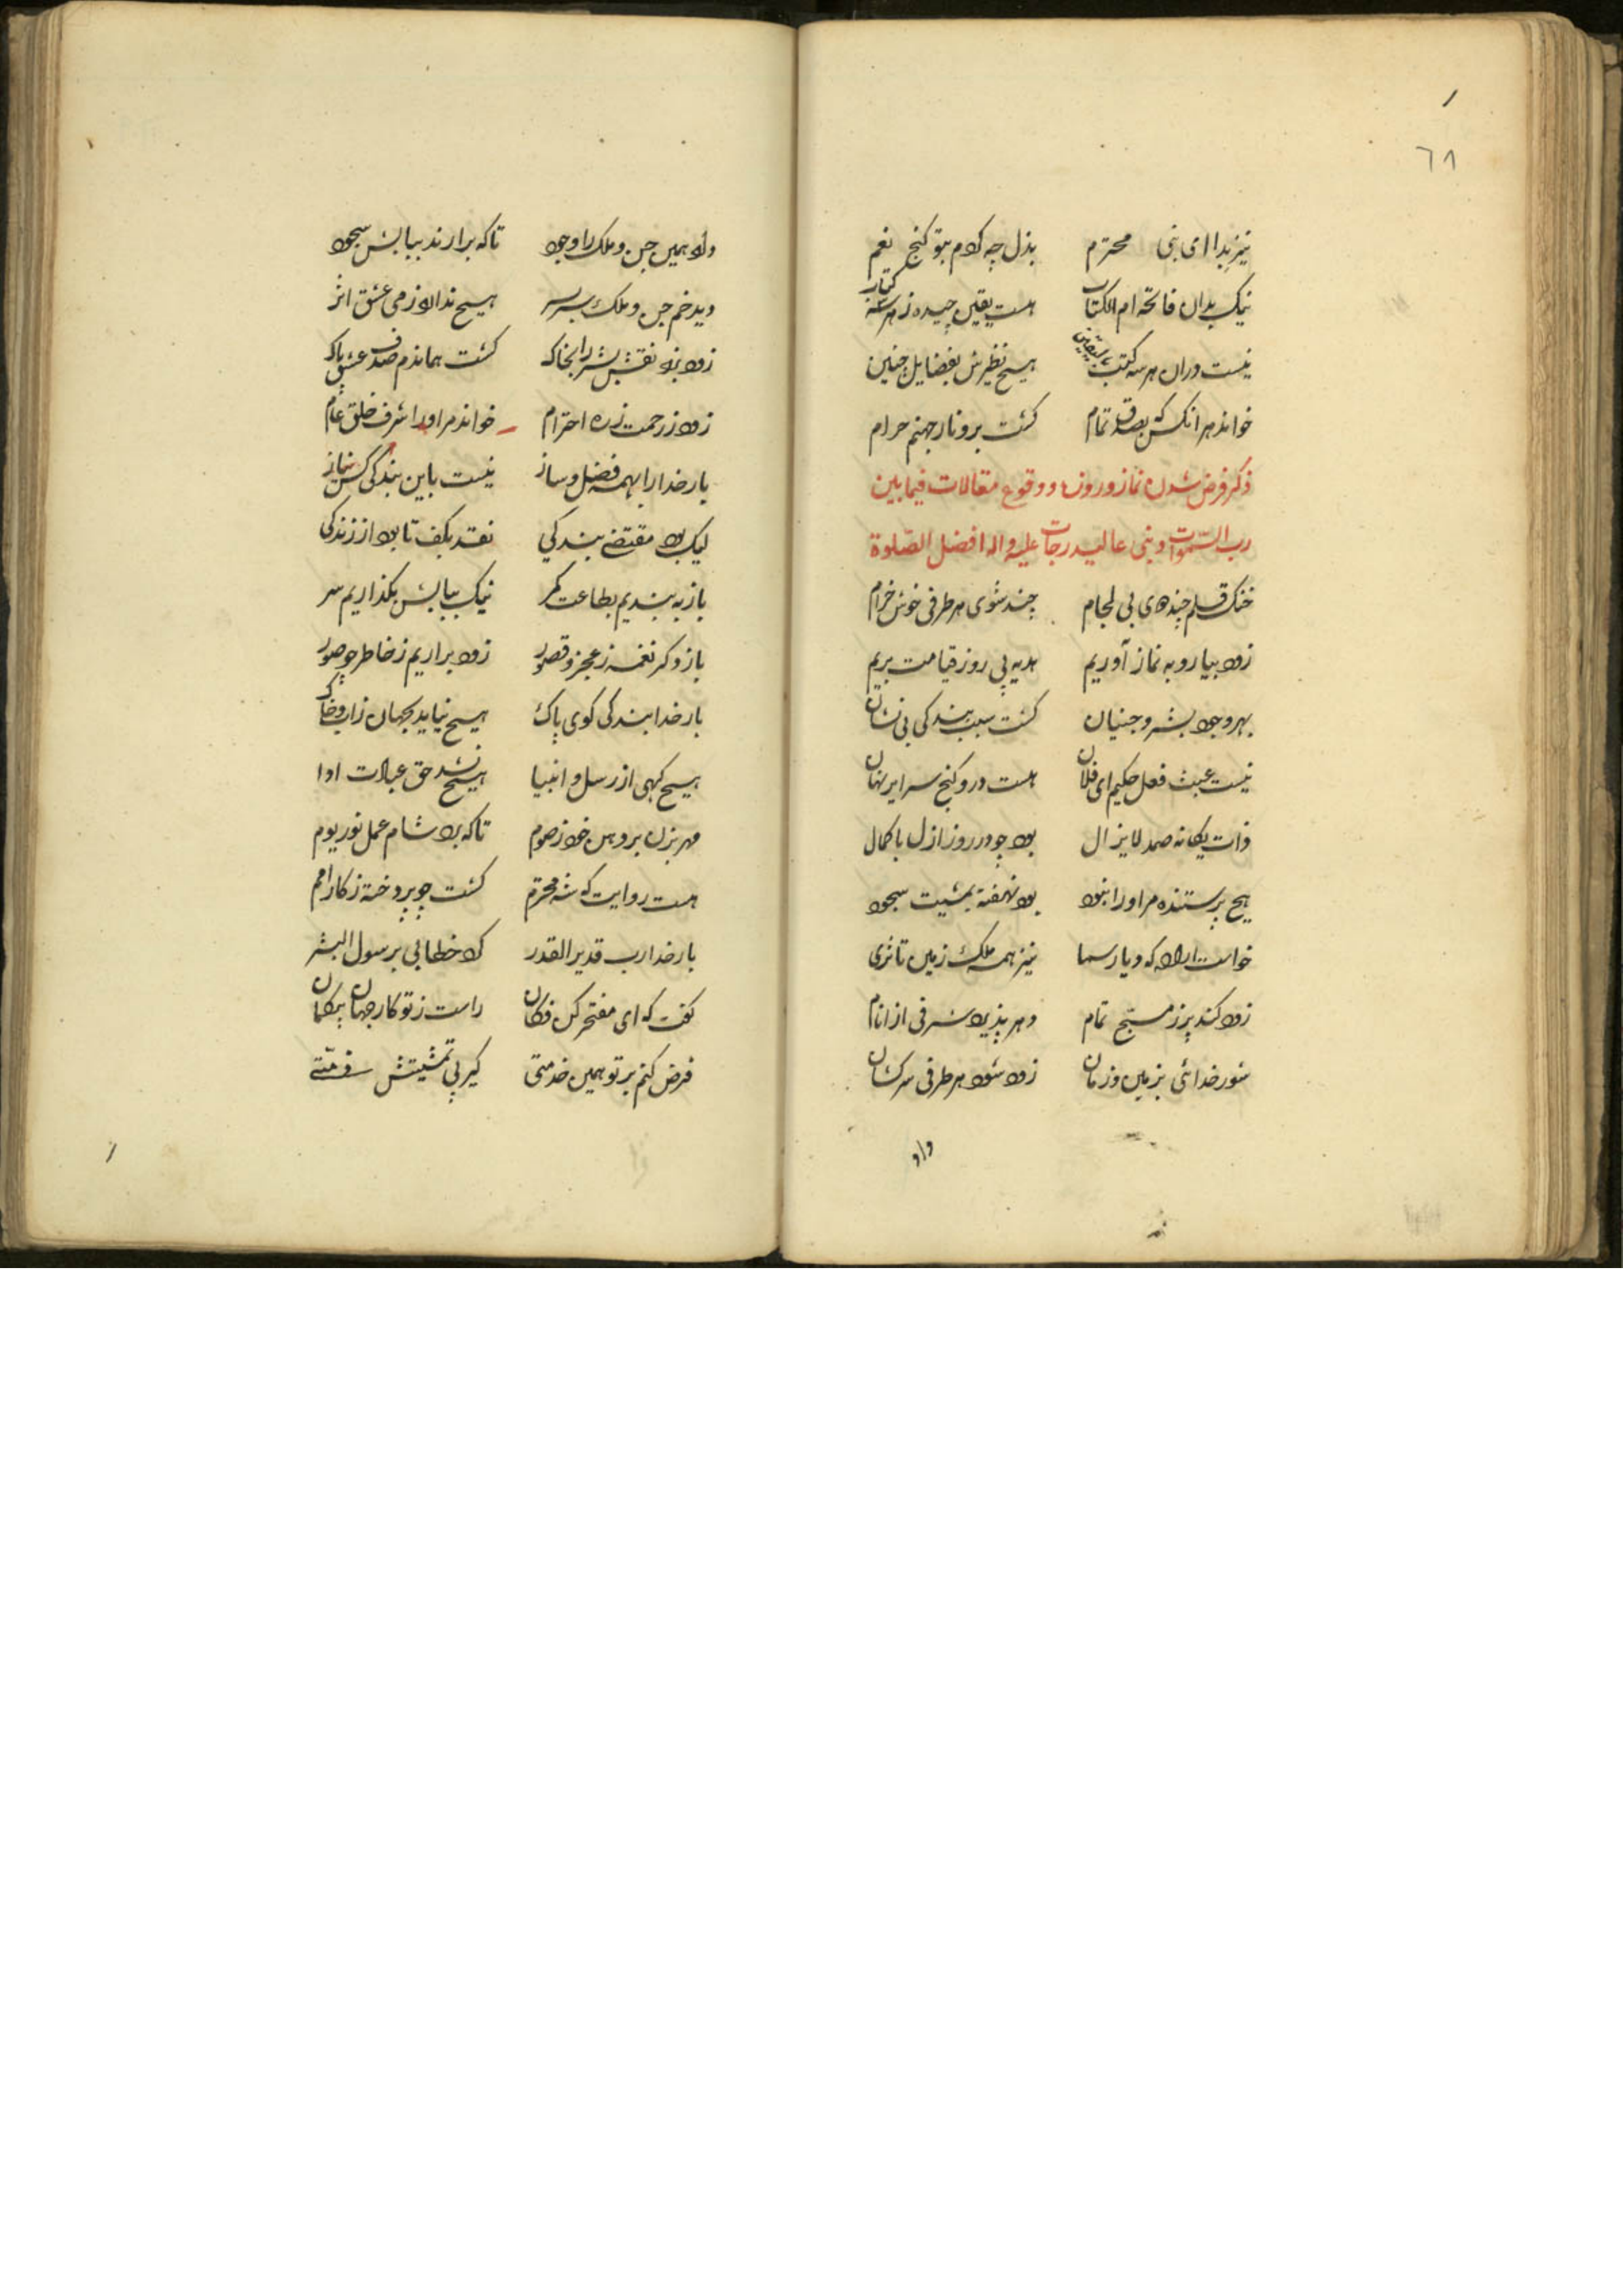 ٦٨
نیز بدا ای نبی محترم بذل چه کردم بتو کنج نعم
نیک بدان فاتحه ام الکتاب هست یقین چیده ز هر سه کتاب
نیست دران هر سه کتب بالیقین هیچ نظیرش بفضایل چنین
خواند هر انکس که بصدق تمام کشت برو نار جهنم حرام
ذکر فرض شدن نماز و روزه و وقوع مقالات فیما بین
رب السموات و نبی عالیدرجات علیه و اله افضل الصلوة
خنک قلم چند های بی لجام چند شوی هر طرفی خوش خرام
زود بیا رو به نماز آوریم هدیه پی روز قیامت بریم
بهر وجود بشر و جنیان کشت سبب بندکی بی نشان
نیست عبث فعل حکیم ای فلان هست درو کنج سرایر نهان
ذات یکانه صمد لایزال بود چو در روز ازل با کمال
هیچ پرستنده مر او را نبود بود نهفته بمشیت سجود
خواست اراده که دیار سما نیز همه ملک زمین تا ثری
زود کند پر ز مسبح تمام دهر پذیرد شرفی از انام
شور خدائی بزمین و زمان زود شود هر طرفی سرکشان
داد
داد همین جن و ملک را وجود تاکه برارند ببابش سجود
دید خم جن و ملک سربسر هیچ نداد از می عشق اثر
زود بزد نقش بشر را بخاک کشت هماندم صدف عشق پاک
زود ز رحمت زره احترام خواند مر او را شرف خلق عام
بار خدا را بهمه فضل و ساز نیست باین بندکی کس نیاز
لیک بود مقتضی بندکی نقد بکف تا بود از زندکی
باز به بندیم بطاعت کمر نیک ببابش بکذاریم سر
باز دکر نغمه ز عجز و قصور زود براریم ز خاطر چو صور
بار خدا بندکی کوی پاک هیچ نیاید بجهان زاب و خاک
هیچ کهی از رسل و انبیا هیچ نشد حق عبادت ادا
مهر بزن بر دهن خود ز صوم تاکه برد شام عمل نور یوم
هست روایت که شه محترم کشت چو پردخته ز کار امم
بار خدا رب قدیر القدر کرد خطابی برسول البشر
کفت که ای مفتخر کن فکان راست ز تو کار جهان بیکمان
فرض کنم بر تو همین خدمتی کیر پی تمشیتش